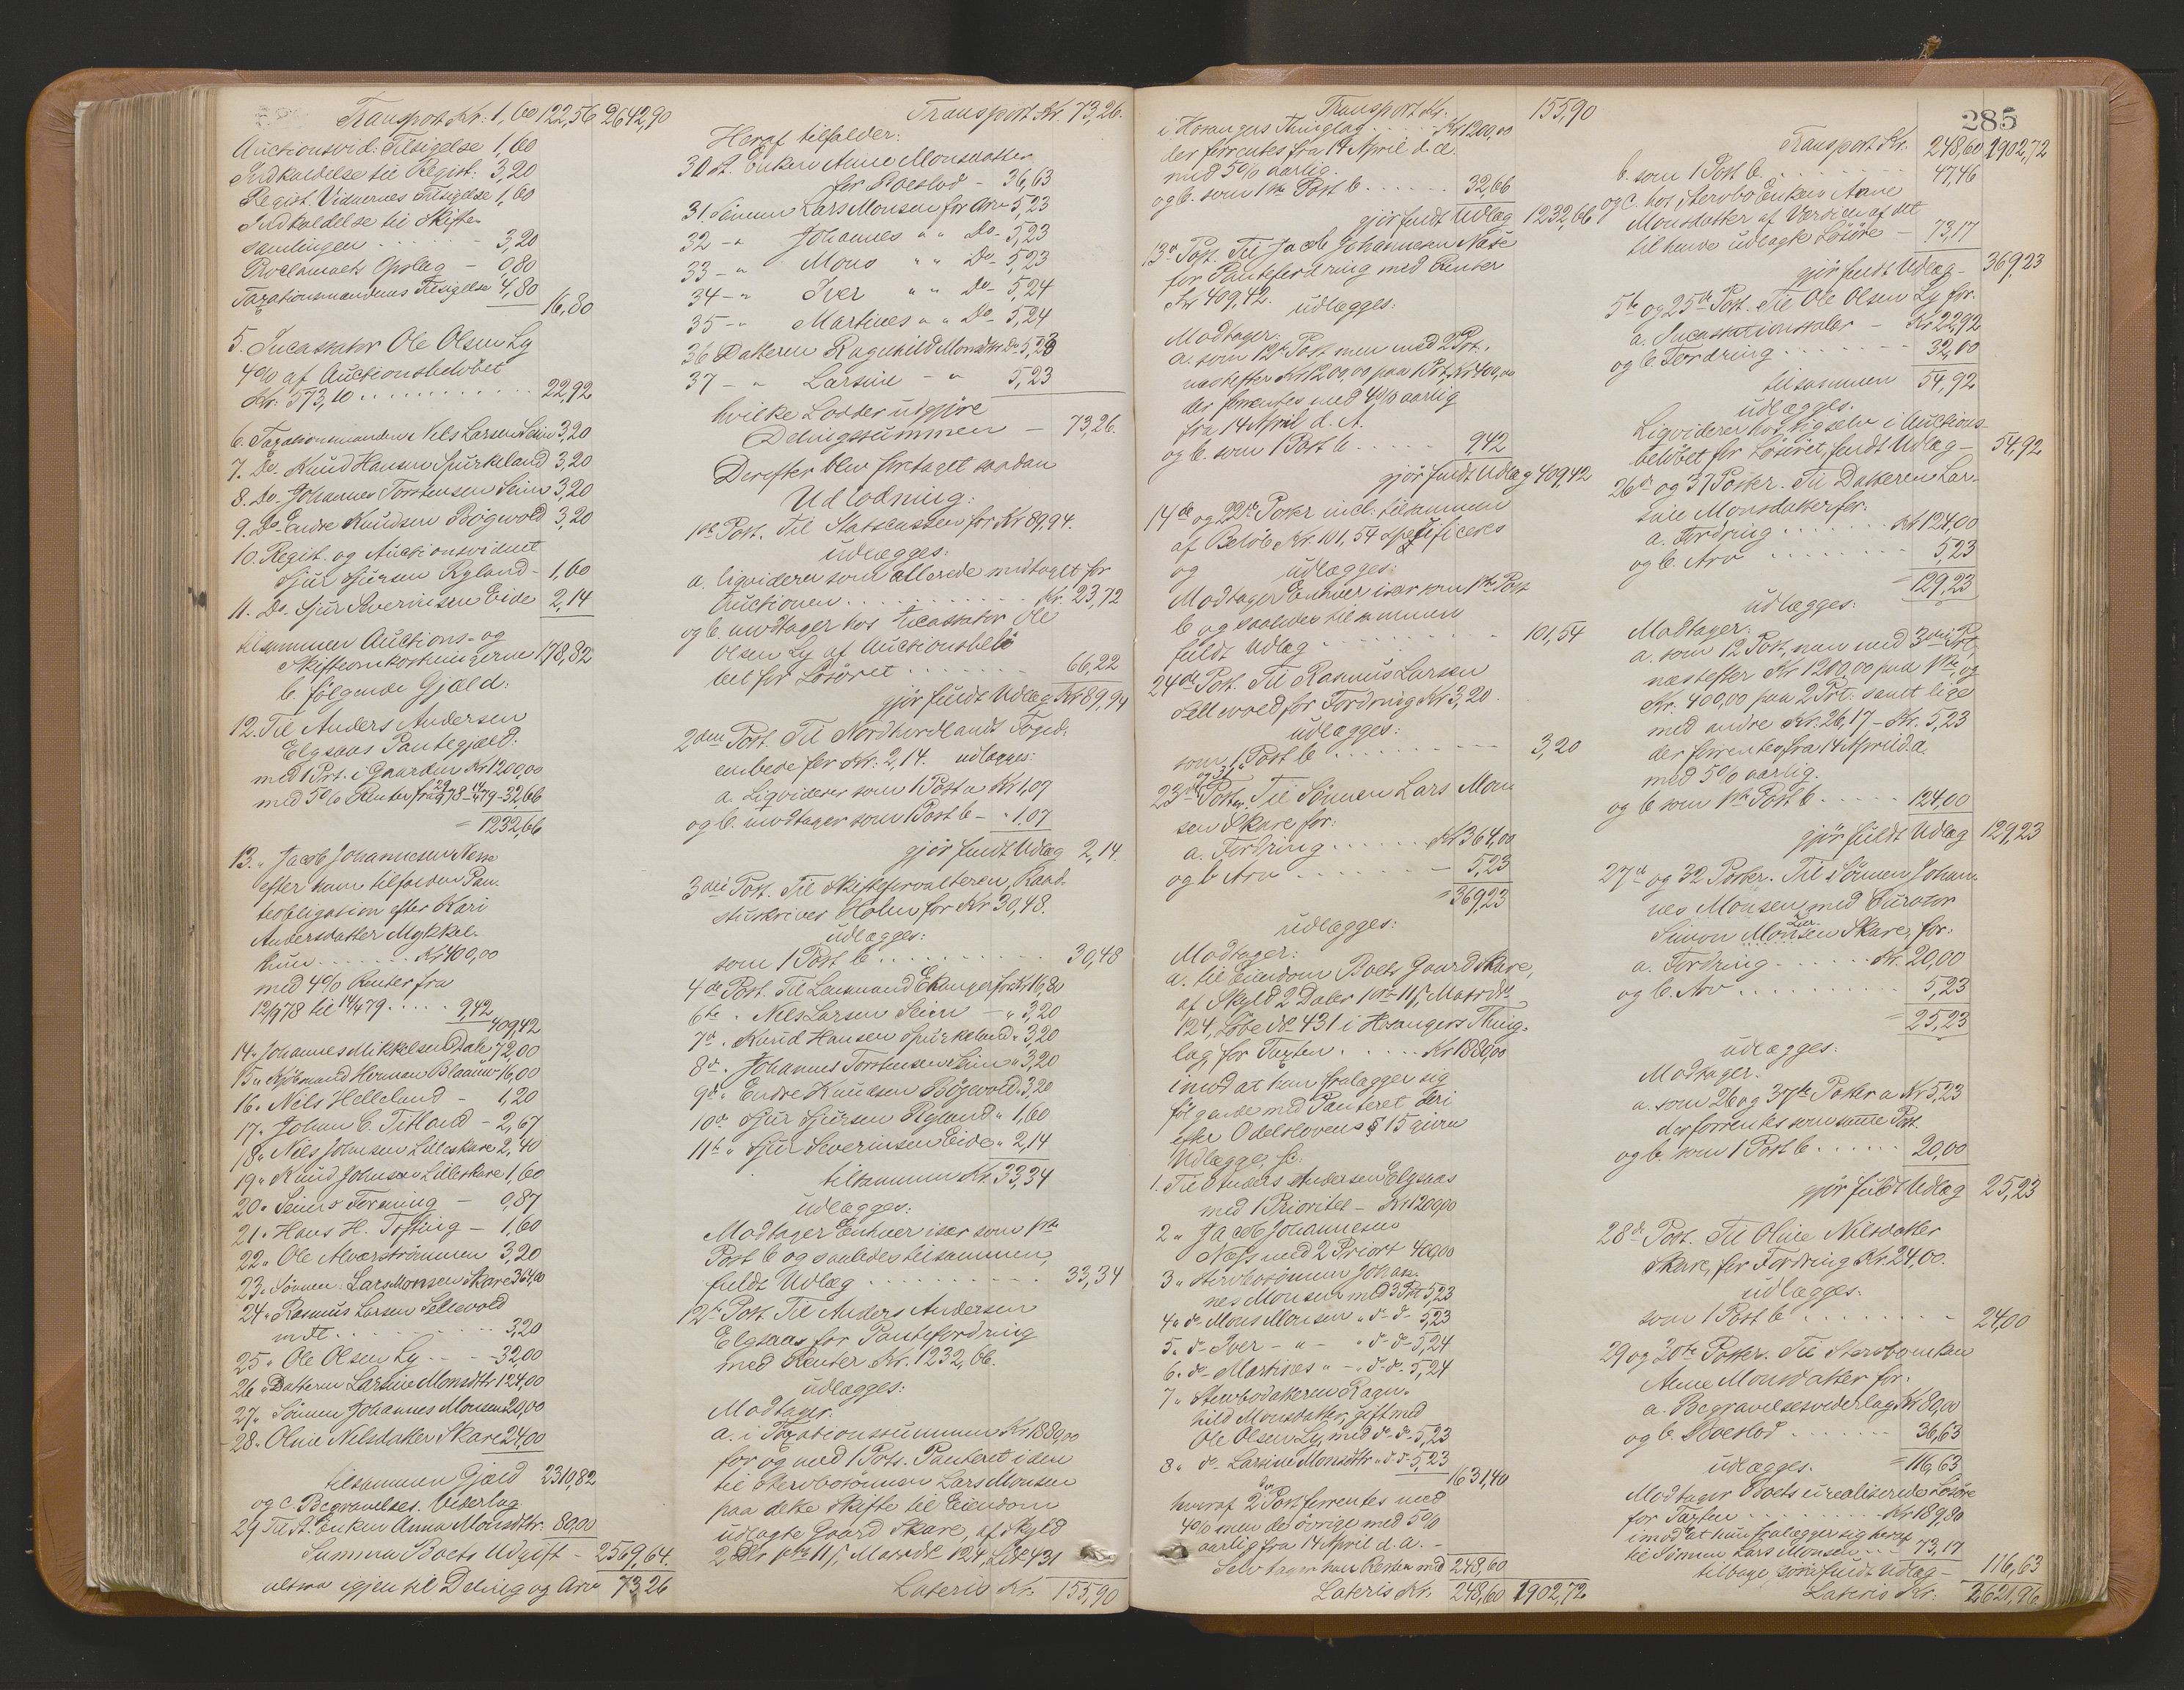 Transport Kr: 1,60 122,56 2642,90
Auctionsvid: Tilsigelse 1,60
Indkaldelse til Regist: 3,20
Regist. Vidnernes Tilsigelse 1,60
Indkaldelse til Skifte-
samlingen - 3,20
Proclamaets Opslag - 0,80
Taxationsmændenes Tilsigelse 4,80
16,80
5. Incassator Ole Olsen Ly
4% af Auctionsbeløbet
Kr. 573,10 22,92
6. Taxationsmanden Nils Larsen Seim 3,20
7. Do. Knud Hansen Spurkeland 3,20
8. Do. Johannes Torstensen Seim 3,20
9. Do. Endre Knudsen Bøgwold 3,20
10. Regist. og Auctionsvidnet
Sjur Sjursen Ryland - 1,60
11. Do. Sjur Severinsen Eide 2,14
tilsammen Auctions- og
Skifteomkostningerne 178,82
b. følgende Gjæld:
12. Til Anders Andersen
Elgsaas Pantegjæld:
med 1 Prt. i Gaarden Kr 1200,00
med 5% Renter fra 78 - 79 - 32,66
= 1232,66
13. " Jacob Johannesen Nesse
efter ham tilfalden Pan-
teobligation efter Kari
Andersdatter Mykkel-
thun Kr 400,00
med 4% Renter fra
12/9 78 til 14/4 79 9,42
409,42
14 " Johannes Mikkelsen Dale 72,00
15 " Kjøbmand Herman Blaauw 16,00
16 " Nils Helleland - 1,20
17 " Johan E. Titland - 2,67
18 " Nils Johnsen Lilleskare 2,40
19 " Knud Johnsen Lilleskare 1,60
20 " Seims Forening - 0,87
21 " Hans H. Tofting - 1,60
22 " Ole Alverstrømmen 3,20
23 " Sønnen Lars Monsen Skare 364,00
24 " Rasmus Larsen Sellevold
3,20
25 " Ole Olsen Ly - 32,00
26 " Datteren Larsine Monsdtr 124,00
27 " Sønnen Johannes Monsen 20,00
28 " Oline Nilsdatter Skare 24,00
tilsammen Gjæld 2310,82
og c. Begravelses. Vederlag
29 Til St. Enken Anna Monsdtr. 80,00
Summa Boets Udgift - 2569,64.
altsaa igjen til Deling og Arv 73,26
Transport Kr. 73,26.
Heraf tilfalder:
30 St. Enken Anne Monsdatter
for Boeslod - 36,63
31. Sønnen Lars Monsen for Arv 5,23
32 - " Johannes " " Do - 5,23
33 - " Mons " " Do - 5,23
34 - " Iver " " Do - 5,24
35 - " Martines " " Do - 5,24
36 Datteren Ragnhild Monsdtr. Do 5,23
37 - " Larsine - " 5,23
hvilke Lodder udgjøre
Delingssummen - 73,26.
Derefter blev foretaget saadan
Udlodning:
1ste Post. Til Statscassen for Kr 89,94.
udlægges:
a. ligviderer som allerede modtaget for
Auctionen Kr. 23,72
og b. modtager hos Incassator Ole
Olsen Ly af Auctionsbelø-
bet for Løsøret 66,22
gjør fuldt Udlæg Kr 89,94
2den Post. Til Nordhordlands Foged-
embede for Kr: 2,14. udlægges:
a. Ligviderer som 1 Post a Kr 1,07
og b. modtager som 1 Post b - " 1,07
gjør fuldt Udlæg 2,14.
3die Post. Til Skifteforvalteren, Raad-
stuskriver Holm for Kr 30,48.
udlægges:
som 1 Post b 30,48
4de Post. Til Lensmand Ekanger for Kr 16,80
6te " Nils Larsen Seim - " 3,20
7de " Knud Hansen Spurkeland " 3,20
8de " Johannes Torstensen Seim " 3,20
9de " Endre Knudsen Bögwold " 3,20
10de " Sjur Sjursen Ryland " 1,60
11te " Sjur Severinsen Eide " 2,14
tilsammen Kr. 33,34
udlægges:
Modtager Enhver især som 1ste
Post b og saaledes tilsammen,
fuldt Udlæg 33,34
12te Post. Til Anders Andersen
Elgsaas for Pantefordring
med Renter Kr. 1232,66.
udlægges:
Modtager:
a. i Taxationssummen Kr 1880,00
for og med 1 Prt. Panteret i den
til Stervbosønnen Lars Monsen
paa dette Skifte til Eiendom
udlagte Gaard Skare, af Skyld
2 Dlr 1 11 ß Matr. No 124, L. No 431
Lateris Kr. 155,90
Transport Kr. 155,90
i Hosangers Thinglag Kr 1200,00
der forrentes fra 14 April d. A.
med 5% aarlig.
og b. som 1ste Post b 32,66
gjør fuldt Udlæg 1232,66
13de Post. Til Jacob Johannesen Næse
for Pantefordring med Renter
Kr 409,42. udlægges:
Modtager:
a. som 12te Post men med 2 Prt.
næstefter Kr 1200,00 paa 1 Prt. Kr 400,00
der forrentes med 4% aarlig
fra 14 April d. A.
og b. som 1 Post b 9,42
gjør fuldt Udlæg 409,42
14de og 22de Poster incl. tilsammen
af Beløb Kr. 101,54 spesificeres
og udlægges:
Modtager Enhver især som 1ste Post
b og saaledes tilsammen
fuldt Udlæg 101,54
24de Post. Til Rasmus Larsen
Sellevold for Fordring Kr 3,20.
udlægges:
som 1 Post b 3,20
og 31
23de Poster. Til Sønnen Lars Mon-
sen Skare for:
a. Fordring Kr 364,00
og b Arv - 5,23
= 369,23
udlægges:
Modtager:
a. til Eiendom Boets Gaard Skare,
af Skyld 2 Daler 1 11 ß, Matr. No
124, Løbe No 431 i Hosangers Thing-
lag for Taxten Kr 1880,00
imod at han fralægger sig
følgende med Panteret heri
efter Odelslovens § 15 givne
Udlægge, sc:
1. Til Anders Andersen Elgsaas
med 1 Prioritet - Kr 1200,00
2 " Jacob Johannesen
Næss med 2 Priort 400,00
3 " Stervbosønnen Johan-
nes Monsen med 3 Prt 5,23
4 " do Mons Monsen " do - do - 5,23
5 " do Iver - " - " do - do - 5,24
6 " do Martines " - " do - do - 5,24
7 " Stervbodatteren Ragn-
hild Monsdatter, gift med
Ole Olsen Ly, med do - do - 5,23
8 " do Larsine Monsdtr " do do 5,23
1631,40
hvoraf 2den Post forrentes med
4% men de øvrige med 5%
aarlig fra 14 April d. A. -
Selv tager han Resten med 248,60
Lateris Kr. 248,60 1902,72
285
Transport Kr. 248,60 1902,72
b. som 1 Post b. 47,46
og c. hos Stervbo Enken Anne
Monsdatter af Værdien af det
til hende udlagte Løsøre - 73,17
gjør fuldt Udlæg - 369,23
5te og 25de Post. Til Ole Olsen Ly for:
a. Incassationssalær - Kr 22,92
og b. Fordring 32,00
tilsammen 54,92
udlægges.
Ligviderer hos sig selv i Auctions-
beløbet for Løsøret, fuldt Udlæg - 54,92
26de og 37 Poster. Til Datteren Lar-
sine Monsdatter for:
a. Fordring Kr. 124,00
og b. Arv 5,23
= 129,23
udlægges:
Modtager:
a. som 12 Post, men med 3die Prt.
næstefter Kr 1200,00 paa 1ste og
Kr. 400,00 paa 2 Prt: samt lige
med andre Kr. 26,17 - Kr. 5,23
der forrentes fra 14 April d. a.
med 5% aarlig.
og b som 1ste Post b 124,00
gjør fuldt Udlæg 129,23
27de og 32 Poster. Til Sønnen Johan-
nes Monsen, med Curator
Simon Monsen Skare, for:
a. Fordring Kr. 20,00
og b. Arv 5,23
= 25,23
udlægges:
Modtager:
a. som 26 og 37te Poster a Kr 5,23
der forrentes som samme Post.
og b. som 1 Post b 20,00
gjør fuldt Udlæg 25,23
28de Post. Til Oline Nilsdatter
Skare, for Fordring Kr. 24,00.
udlægges:
som 1 Post b 24,00
29 og 30te Poster. Til Stervboenken
Anne Monsdatter for:
a. Begravelsesvederlag Kr 80,00
og b. Boeslod 36,63
= 116,63
udlægges.
Modtager Boets urealiserede Løsøre
for Taxten Kr 189,80
imod at hun fralægger sig heraf
til Sønnen Lars Monsen 73,17
tilbage som fuldt Udlæg - 116,63
Lateris Kr. 2621,96.